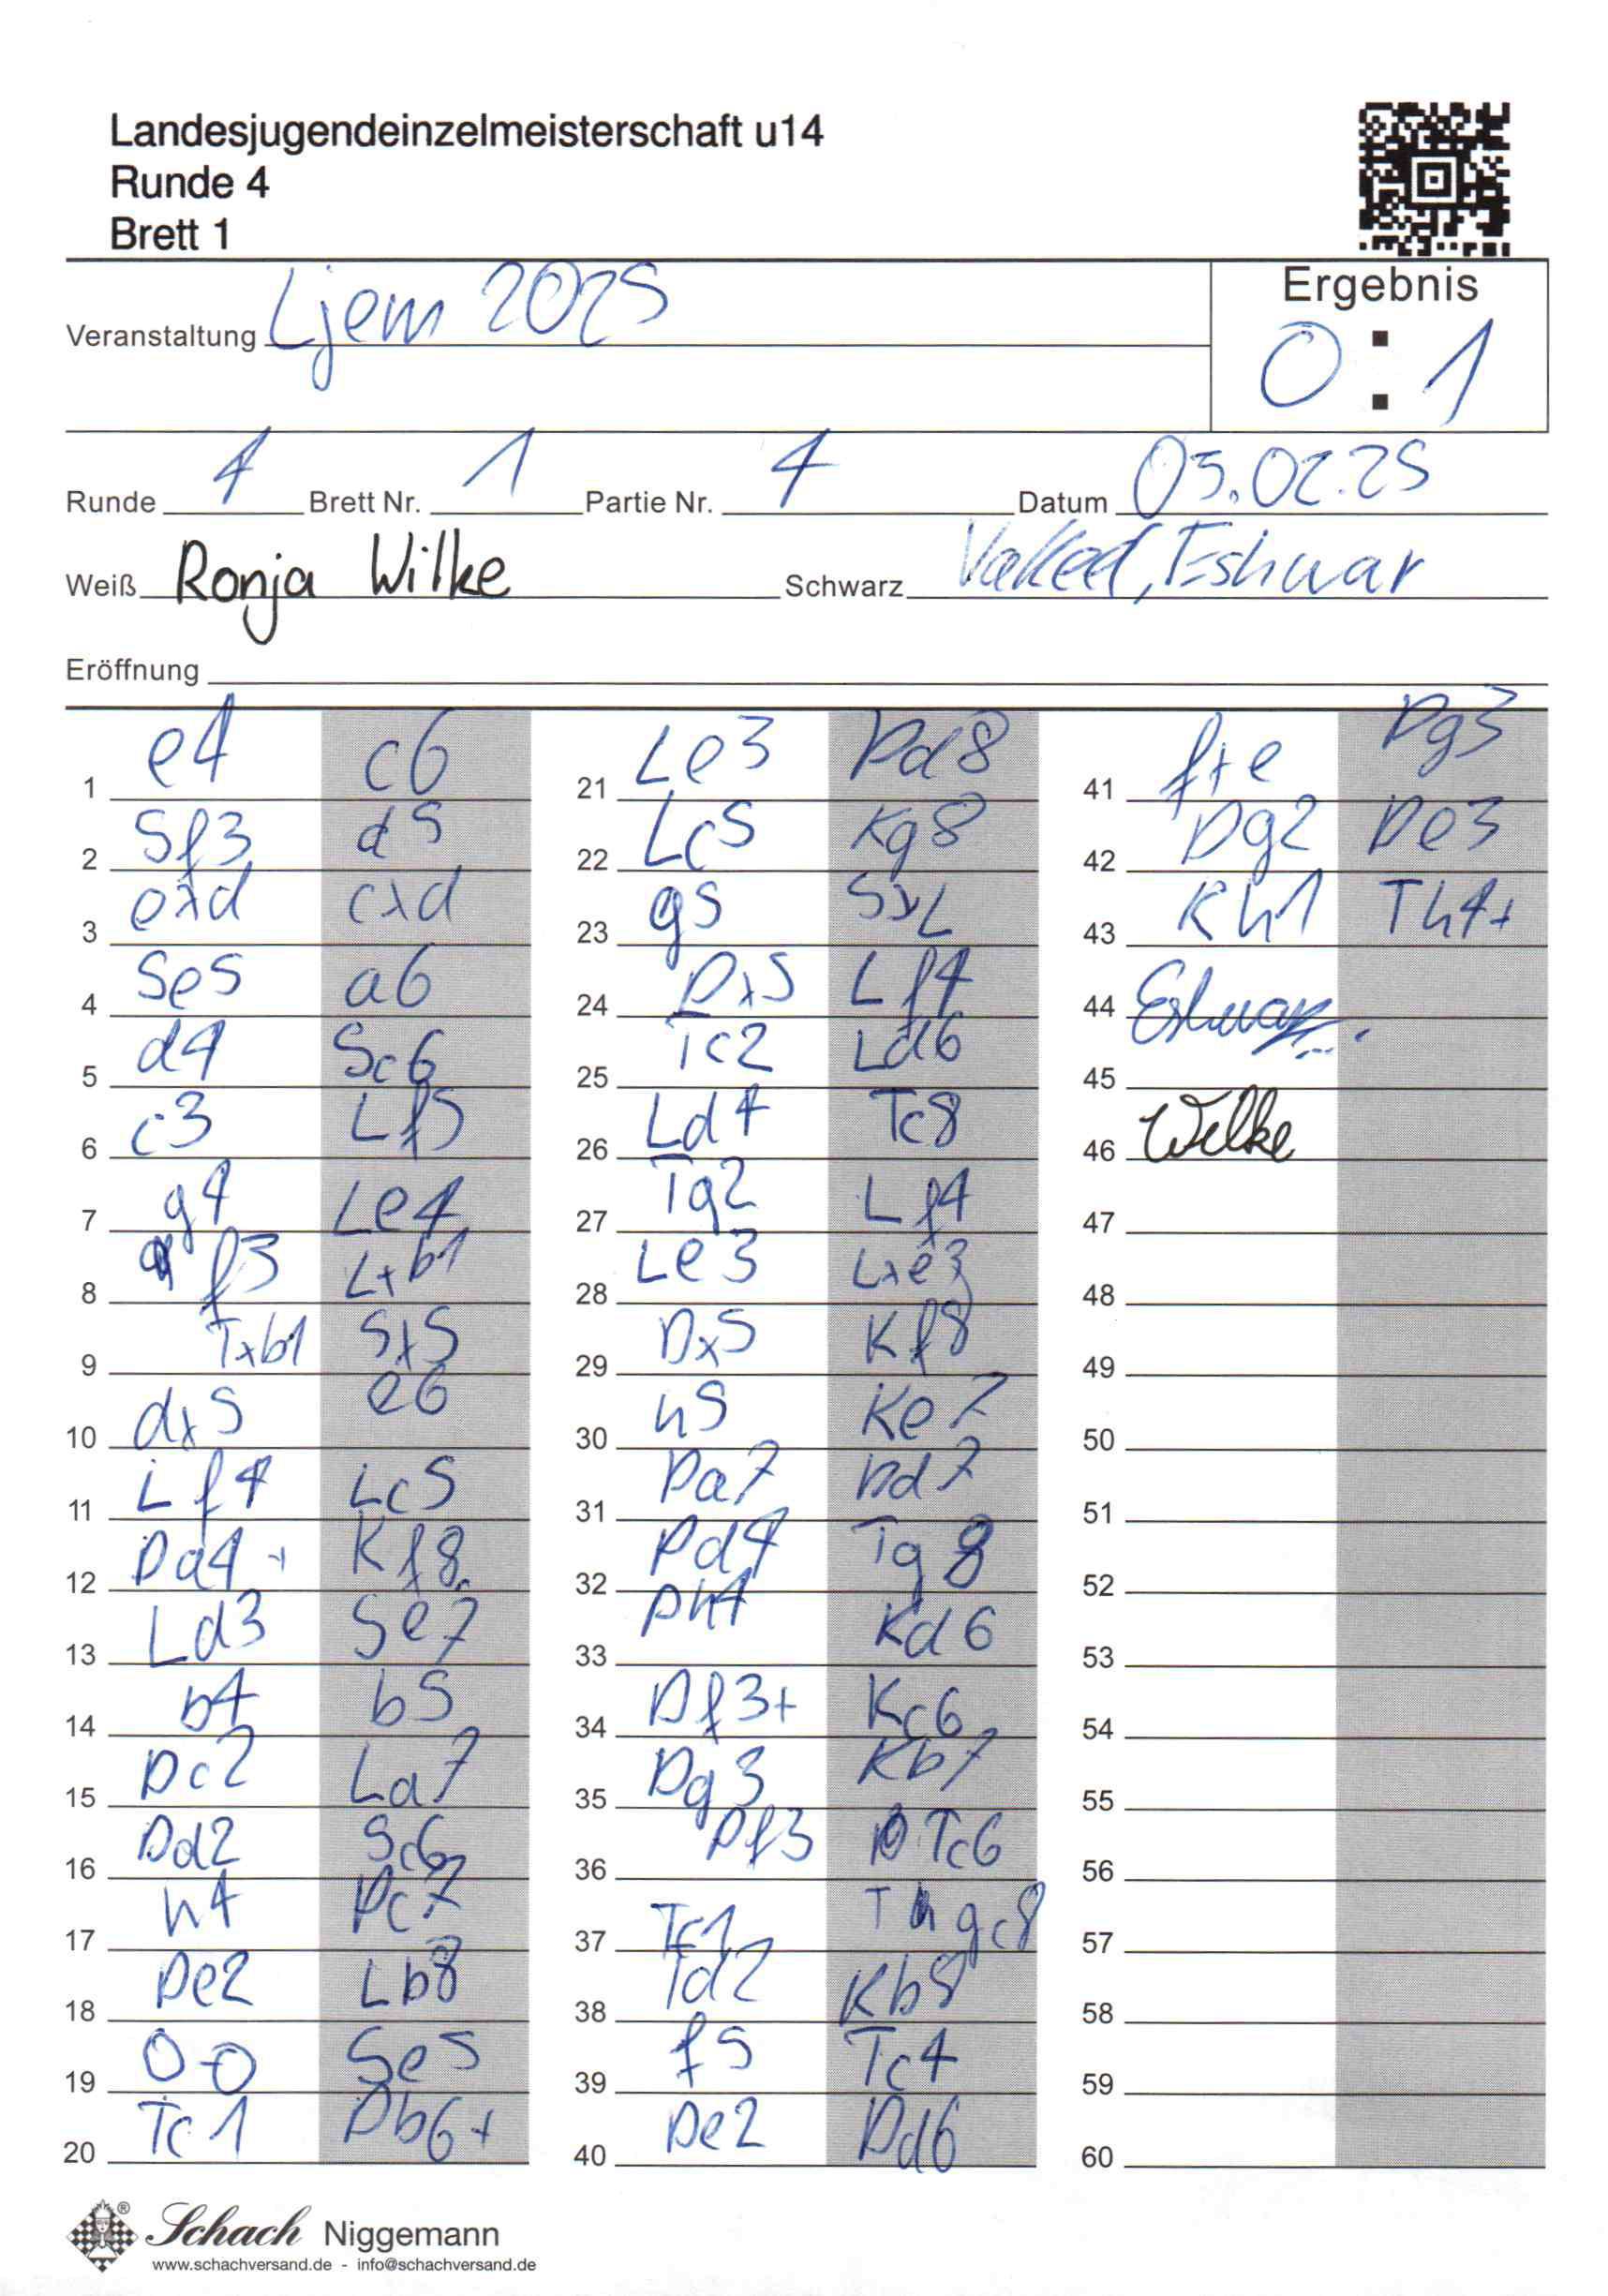 Landesjugendeinzelmeisterschaft u14
Runde 4
Brett 1
Ergebnis
Veranstaltung Ljem 2025
0 : 1
Runde 4 Brett Nr. 1 Partie Nr. 4 Datum 03.02.25
Weiß Ronja Wilke Schwarz Eshwar
Eröffnung
1 e4 c6
2 Sf3 d5
3 exd cxd
4 Se5 a6
5 d4 Sc6
6 c3 Lf5
7 g4 Le4
8 f3 Lxb1
9 Txb1 Sx5
10 dx5 e6
11 Lf4 Lc5
12 Da4+ Kf8
13 Ld3 Se7
14 b4 b5
15 Dc2 La7
16 Dd2 Sc6
17 h4 Dc7
18 De2 Lb8
19 0-0 Se5
20 Tc1 Db6+
21 Le3 Dd8
22 Lc5 Kg8
23 g5 SxL
24 Dx5 Lf4
25 Tc2 Ld6
26 Ld4 Tc8
27 Tg2 Lf4
28 Le3 Lxe3
29 Dx5 Kf8
30 h5 Ke7
31 Da7 Dd7
32 Dd4 Tg8
33 Dh4 Kd6
34 Df3+ Kc6
35 Dg3 Kb7
36 Df3 Tc6
37 Tc1 Tgc8
38 Td2 Kb8
39 f5 Tc4
40 De2 Dd6
41 fxe Dg3
42 Dg2 De3
43 Kh1 Th4+
44 Eshwar
45
46 Wilke
47
48
49
50
51
52
53
54
55
56
57
58
59
60
Schach Niggemann
www.schachversand.de - info@schachversand.de